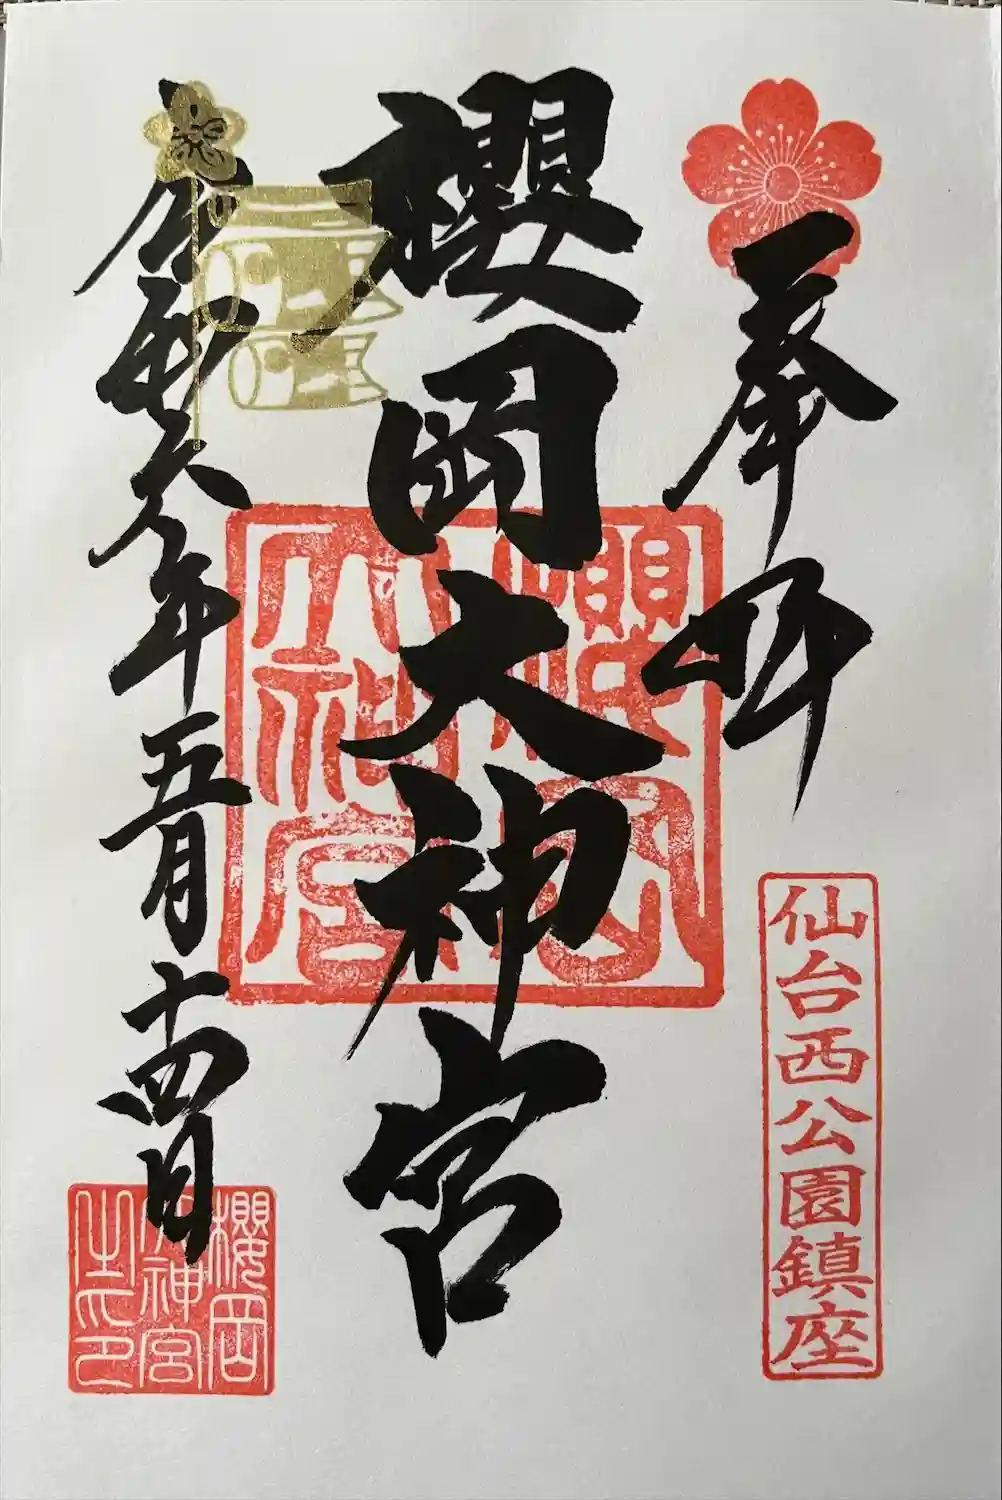 奉拝
仙台西公園鎮座
櫻岡大神宮
櫻岡
大神宮
令和六年五月十四日
櫻岡
大神宮
之印